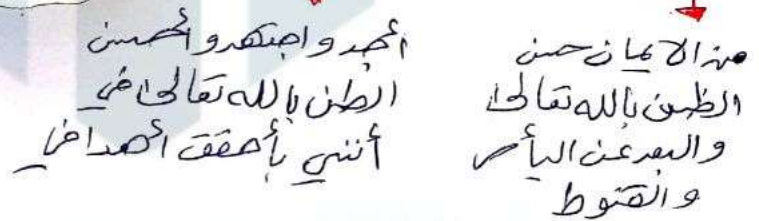 من الايمان حسن
الظن بالله تعالى
والبعد عن اليأس
والقنوط
أجد واجتهد وأحسن
الظن بالله تعالى في
أنني بأحقق أهدافي